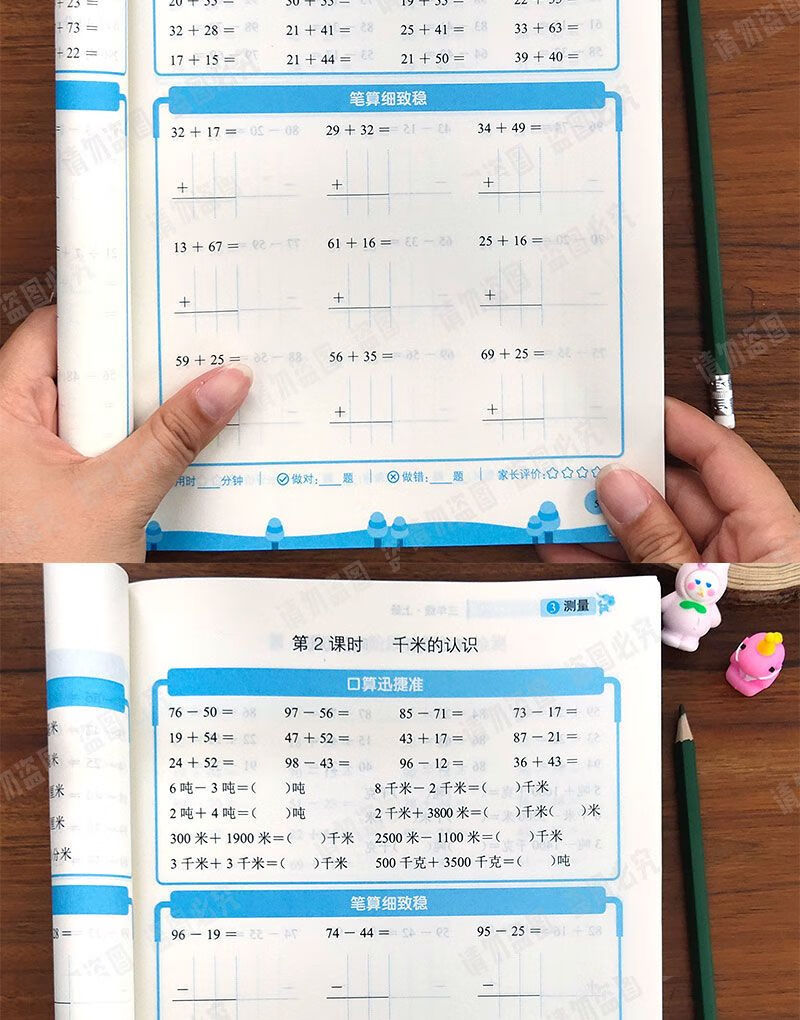 + 23 =
+ 73 =
+ 22 =
32 + 28 = 21 + 41 = 25 + 41 = 33 + 63 =
17 + 15 = 21 + 44 = 21 + 50 = 39 + 40 =
笔算细致稳
32 + 17 = 29 + 32 = 34 + 49 =
+ + +
13 + 67 = 61 + 16 = 25 + 16 =
+ + +
59 + 25 = 56 + 35 = 69 + 25 =
+ +
用时___分钟 做对:___题 做错:___题 家长评价:☆☆☆☆
3 测量
第 2 课时 千米的认识
口算迅捷准
76 − 50 = 97 − 56 = 85 − 71 = 73 − 17 =
19 + 54 = 47 + 52 = 43 + 17 = 87 − 21 =
24 + 52 = 98 − 43 = 96 − 12 = 36 + 43 =
6 吨− 3 吨=( )吨 8 千米− 2 千米=( )千米
2 吨+ 4 吨=( )吨 2 千米+ 3800 米=( )千米( )米
300 米+ 1900 米=( )千米 2500 米− 1100 米=( )千米
3 千米+ 3 千米=( )千米 500 千克+ 3500 千克=( )吨
米
厘米
分米
笔算细致稳
96 − 19 = 74 − 44 = 95 − 25 =
− − −
请勿盗图 盗图必究